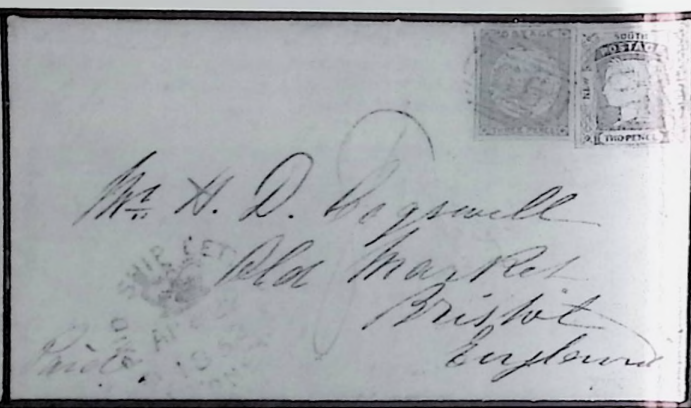 POSTAGE
THREE PENCE
NEW SOUTH
POSTAGE
TWO PENCE
Mr. H. D. Cogswell
Old Market
Bristol
England
SHIP LET
Paid